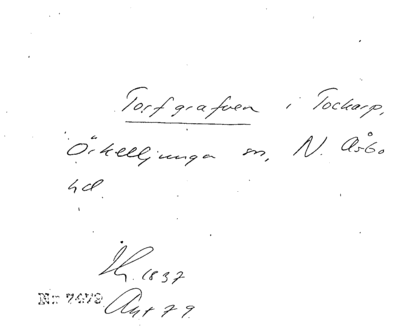 Torfgrafven i Tockarp,
Örkelljunga sn, N. Åsbo
hd.
Th. 1837
Nr 7479
Ant 79